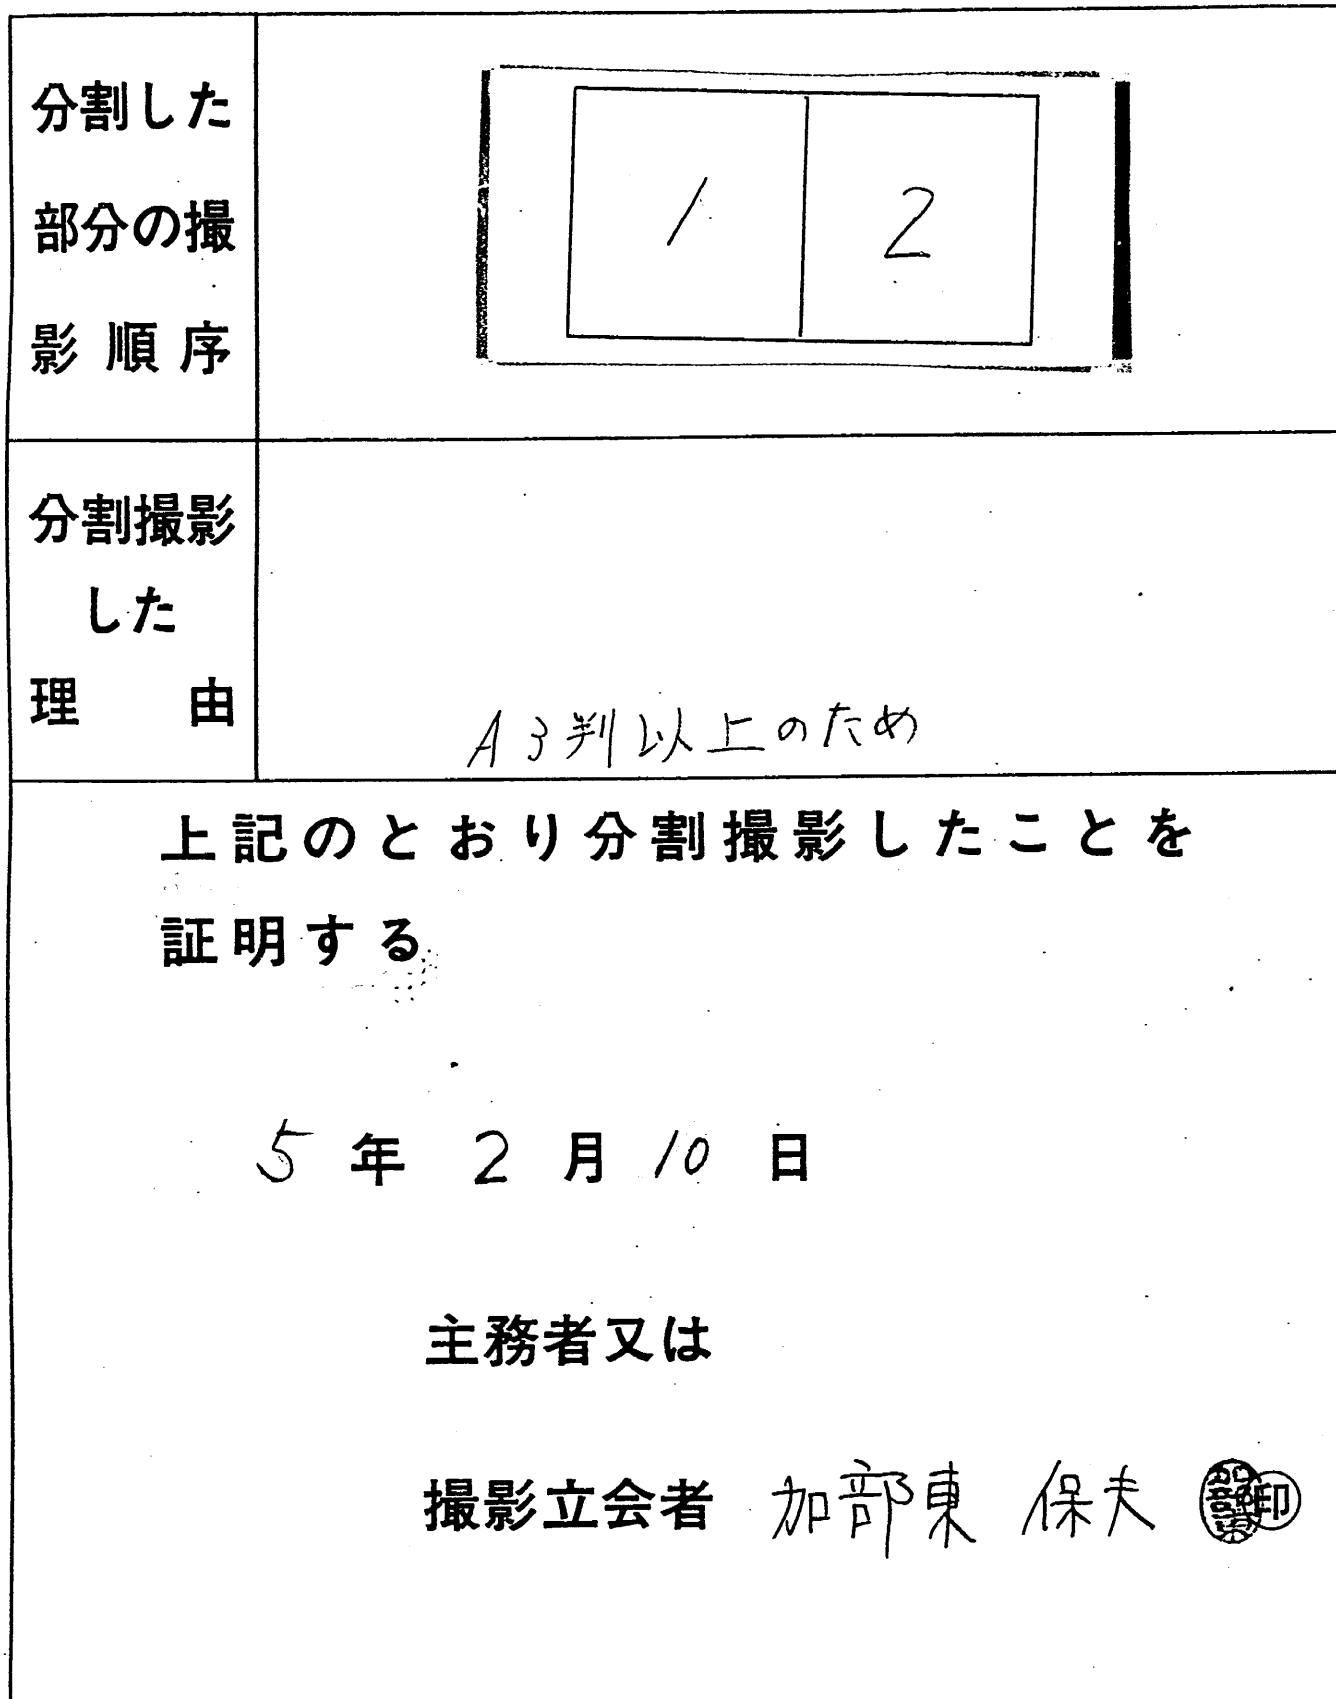 分割した
部分の撮
影順序
1 2
分割撮影
した
理由
A3判以上のため
上記のとおり分割撮影したことを
証明する
5年2月10日
主務者又は
撮影立会者 加部東 保夫 加部東 印